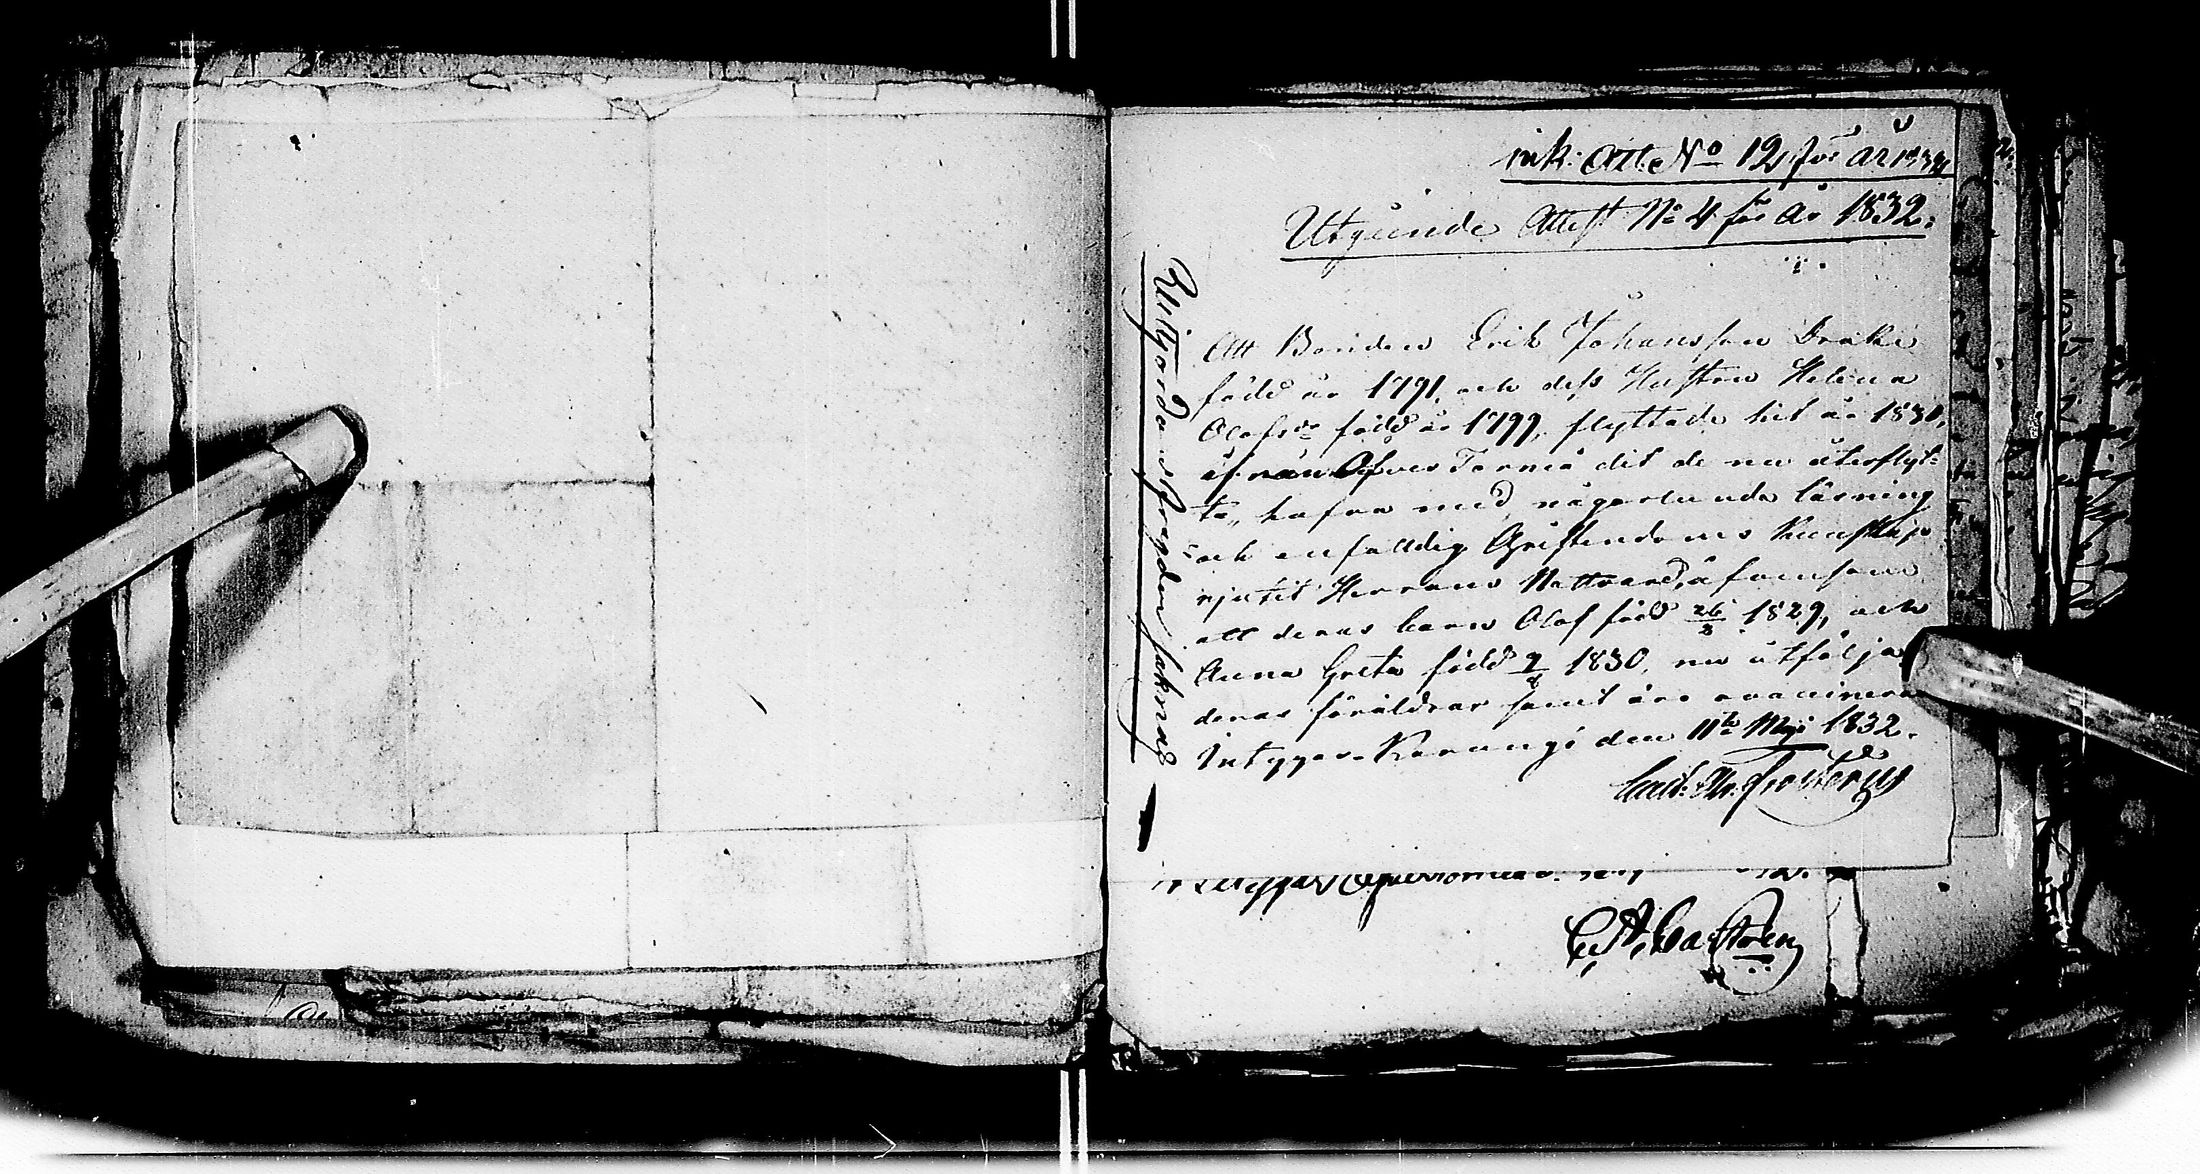 ink: Att. No 12 för år 1832
Utgående Attest No 4 för år 1832.
Att Bonden Erik Johansson Drake
född år 1791, och dess Hustru Helena
Olofsdr född år 1799, flyttade hit år 1830,
ifrån Öfver Torneå dit de nu återflyt-
ta, hafva med någorlunda läsning
och enfaldig Christendoms Kunskap
njutit Herrans Nattvard, äfvensom
att deras barn Olof född 26/2 1829, och
Anna Greta född 9/8 1830, nu åtfölja
deras föräldrar samt äro vaccinerade
Intygar Karungi den 11te Maji 1832.
Carl. Frosterus
Utgjorda afvagder saknas
Intygar
C. A. Castren